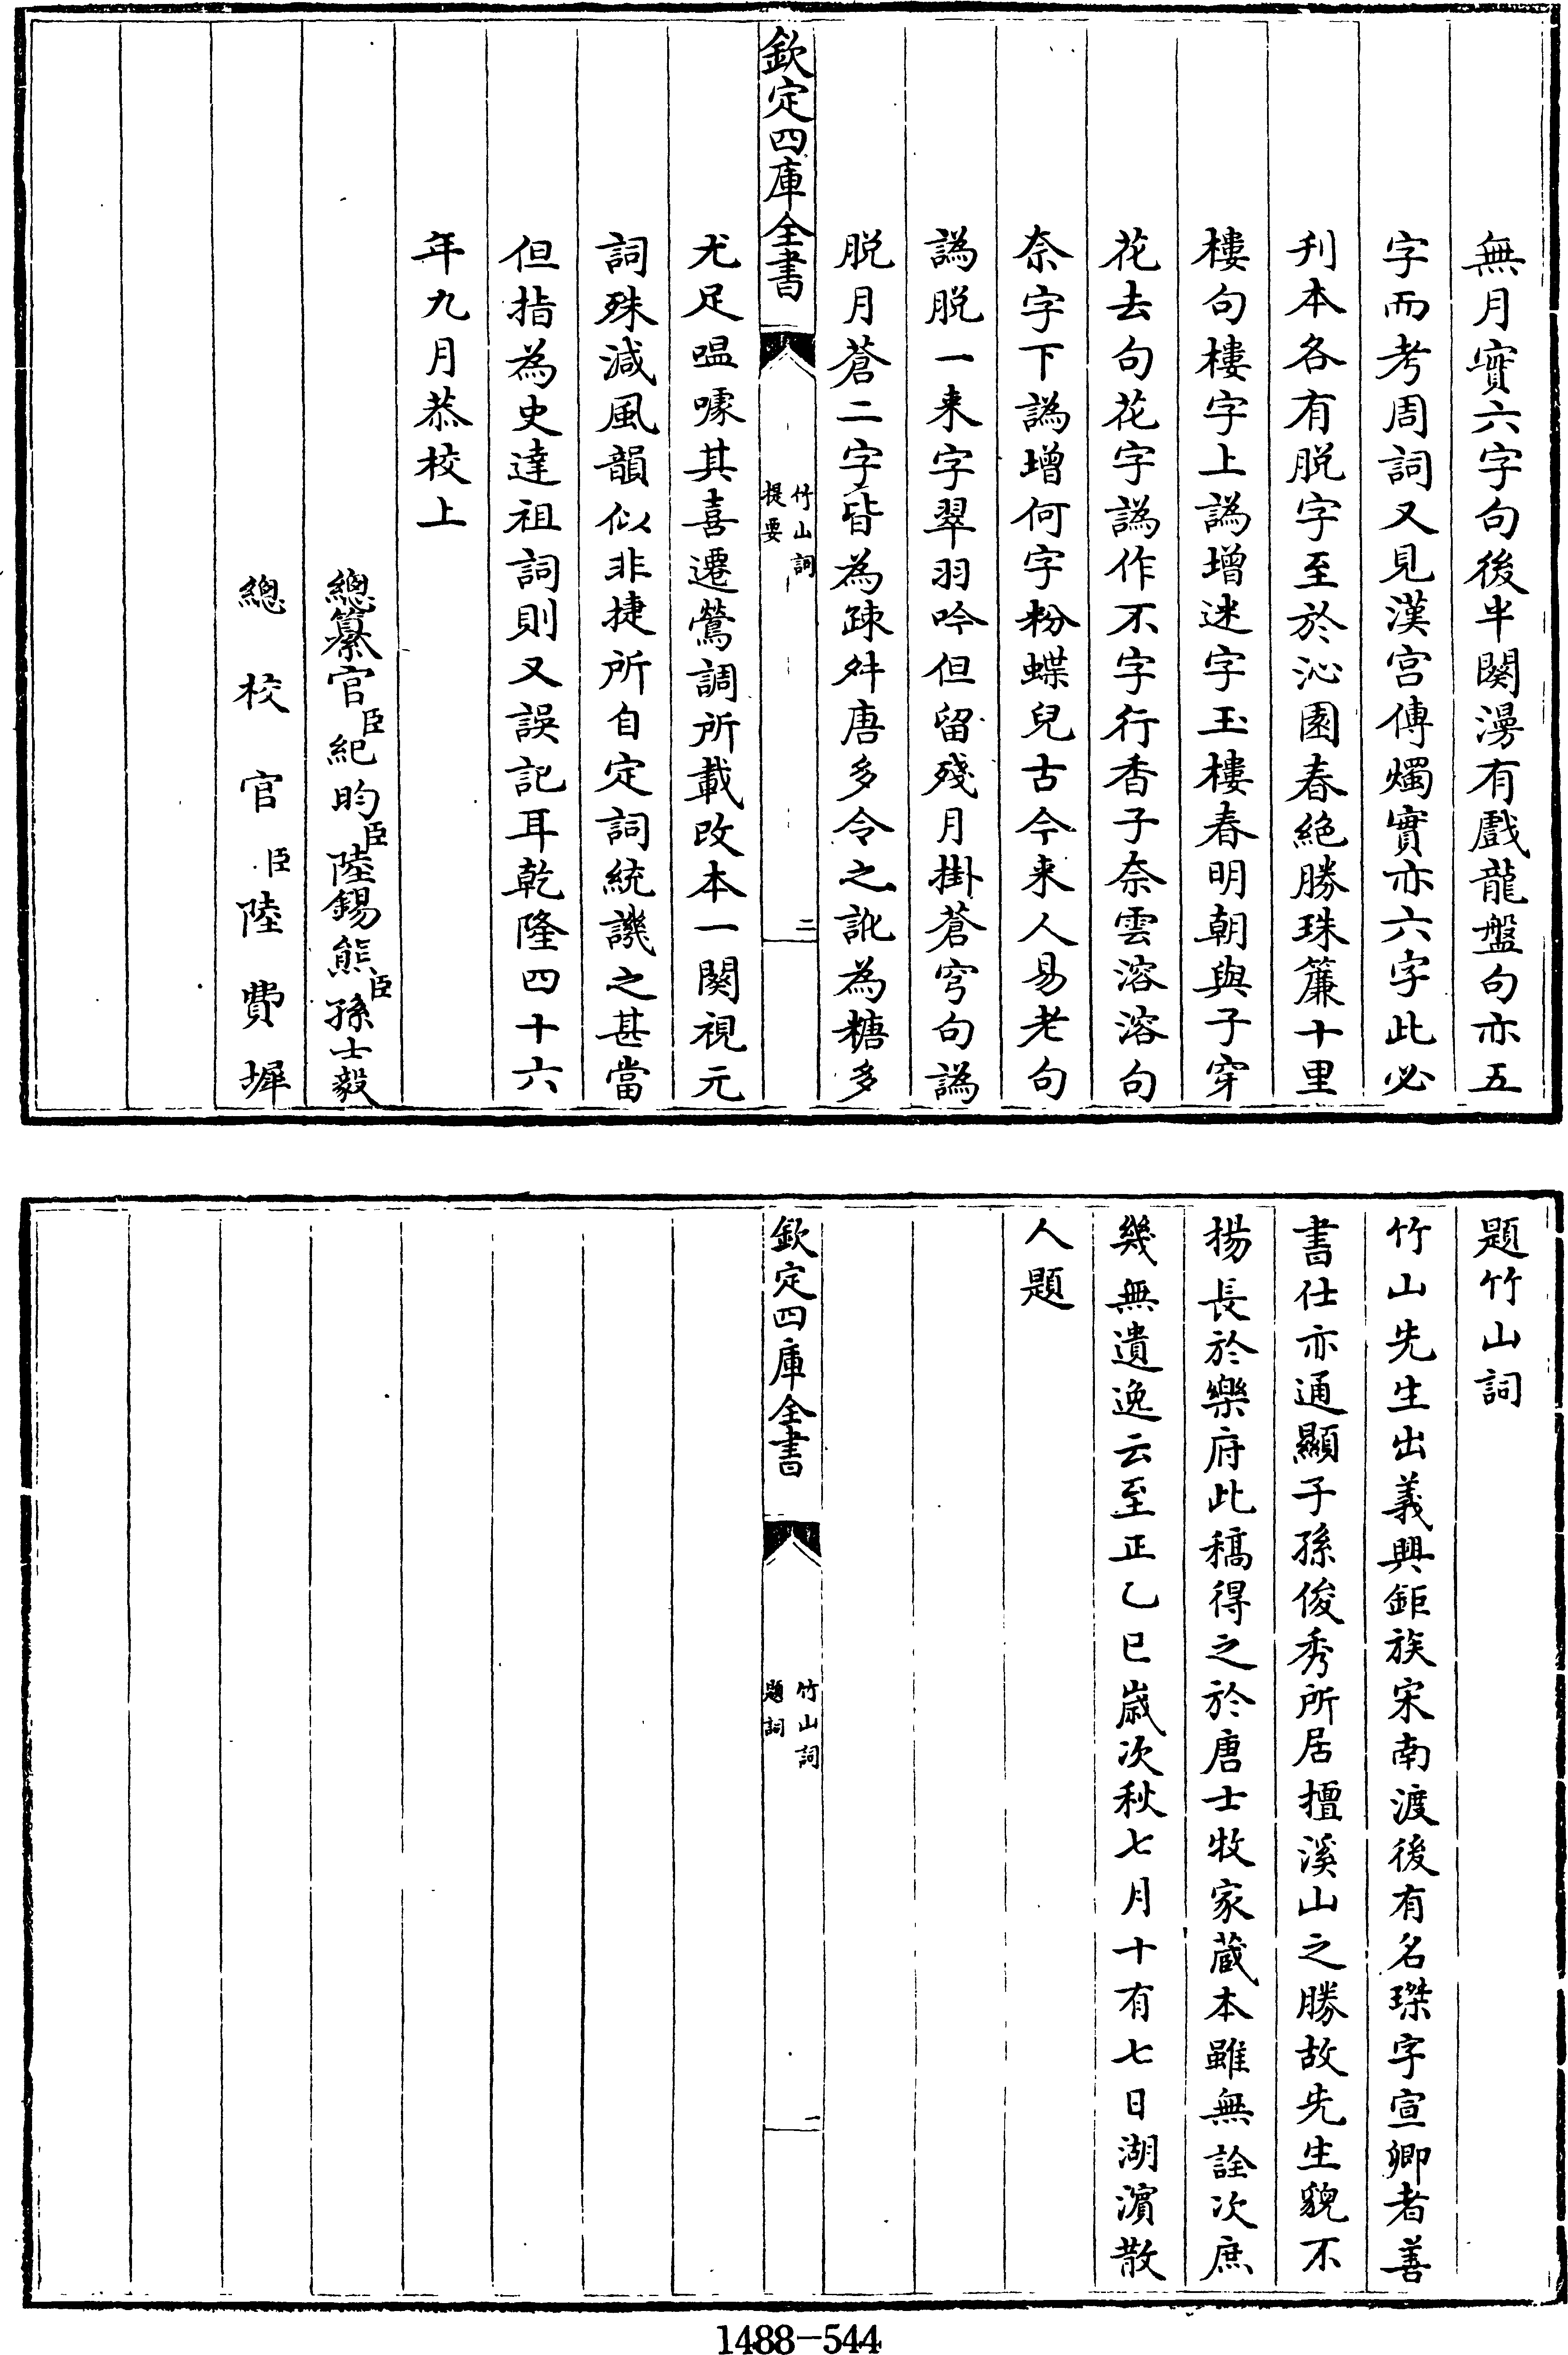 無月實六字句後半闋漫有戲龍盤句亦五
字而考周詞又見漢宫傳燭實亦六字此必
刋本各有脱字至於沁園春絶勝珠簾十里
樓句樓字上譌增迷字玉樓春明朝與子穿
花去句花字譌作不字行香子奈雲溶溶句
奈字下譌增何字粉蝶兒古今来人易老句
譌脱一来字翠羽吟但留殘月掛蒼穹句譌
脱月蒼二字皆為疎舛唐多令之訛為糖多
欽定四庫全書
竹山詞
提要
二
尤足嗢噱其喜遷鶯調所載改本一闋視元
詞殊減風韻似非捷所自定詞統譏之甚當
但指為史達祖詞則又誤記耳乾隆四十六
年九月恭校上
總纂官臣紀昀臣陸錫熊臣孫士毅
總校官臣陸費墀
題竹山詞
竹山先生出義興鉅族宋南渡後有名璨字宣卿者善
書仕亦通顯子孫俊秀所居擅溪山之勝故先生貌不
揚長於樂府此稿得之於唐士牧家蔵本雖無詮次庶
幾無遺逸云至正乙巳歲次秋七月十有七日湖濵散
人題
欽定四庫全書
竹山詞
題詞
一
1488-544